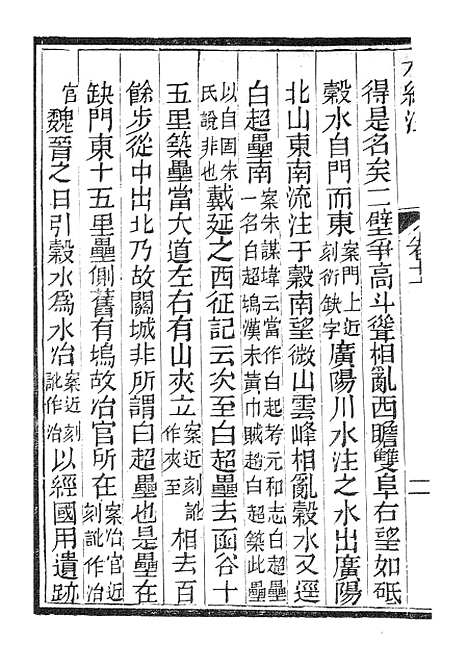 得是名矣二壁爭高斗聳相亂西瞻雙阜右望如砥
穀水自門而東案門上近刻衍缺字廣陽川水注之水出廣陽
北山東南流注于穀南望微山雲峰相亂穀水又逕
白超壘南案朱謀㙔云當作白起考元和志白超壘一名白超塢漢末黃巾賊趙白超築此壘
以自固朱氏說非也戴延之西征記云次至白超壘去函谷十
五里築壘當大道左右有山夾立案近刻訛作夾至相去百
餘步從中出北乃故關城非所謂白超壘也是壘在
缺門東十五里壘側舊有塢故冶官所在案冶官近刻訛作治
官魏晉之日引穀水爲水冶案近刻訛作治以經國用遺跡